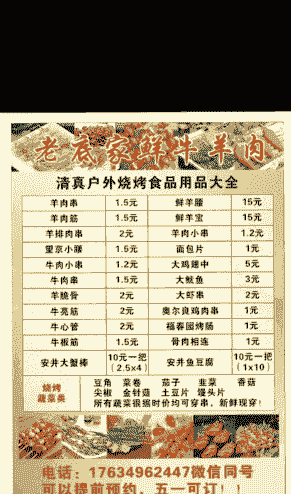 老底家鲜牛羊肉
清真户外烧烤食品用品大全
羊肉串 1.5元 鲜羊腰 15元
羊肉筋 1.5元 鲜羊宝 15元
羊排肉串 2元 羊肉小串 1.2元
望京小腰 1.5元 面包片 1元
牛肉小串 1.2元 大鸡翅中 5元
牛肉串 1.5元 大鱿鱼 3元
羊脆骨 2元 大虾串 2元
牛亮筋 2元 奥尔良鸡肉串 1元
牛心管 2元 福春园烤肠 1元
牛板筋 1.5元 骨肉相连 1元
安井大蟹棒 10元一把(2.5x4) 安井鱼豆腐 10元一把(1x10)
烧烤蔬菜类
豆角 菜卷 茄子 韭菜 香菇
尖椒 金针菇 土豆片 馒头片
所有蔬菜根据时价均可穿串，新鲜现穿！
电话：17634962447微信同号
可以提前预约，五一可订！